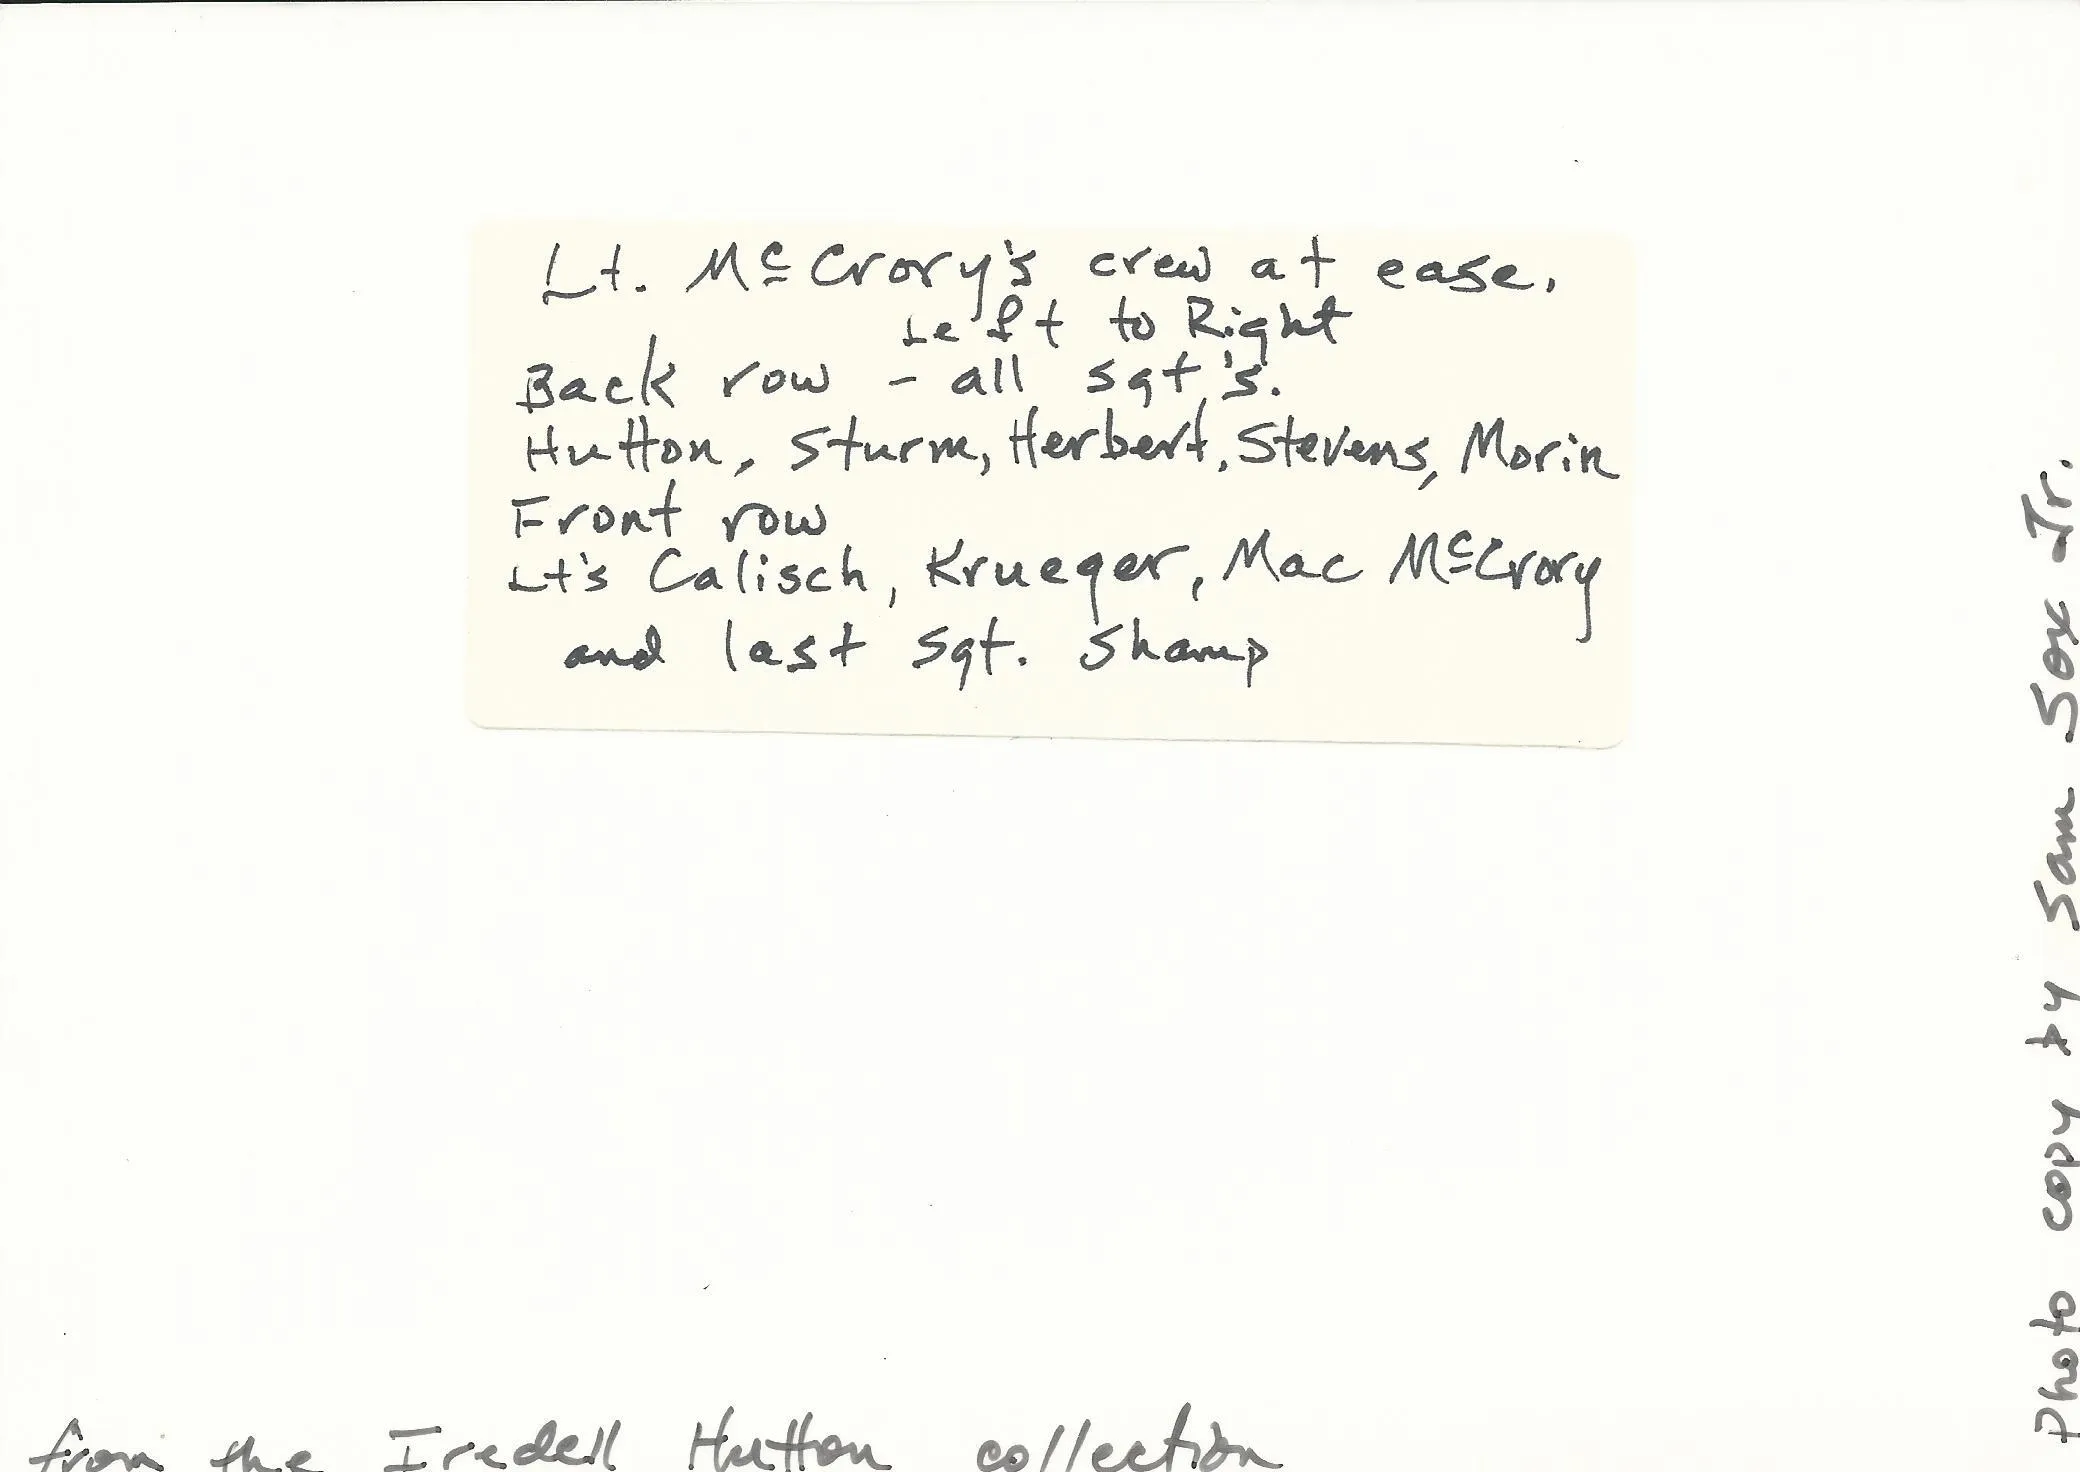 Lt. McCrory's crew at ease.
Left to Right
Back row - all sgt's.
Hutton, Sturm, Herbert, Stevens, Morin
Front row
Lt's Calisch, Krueger, Mac McCrory
and last sgt. Shamp
from the Iredell Hutton collection
Photo copy by Sam Sox Jr.